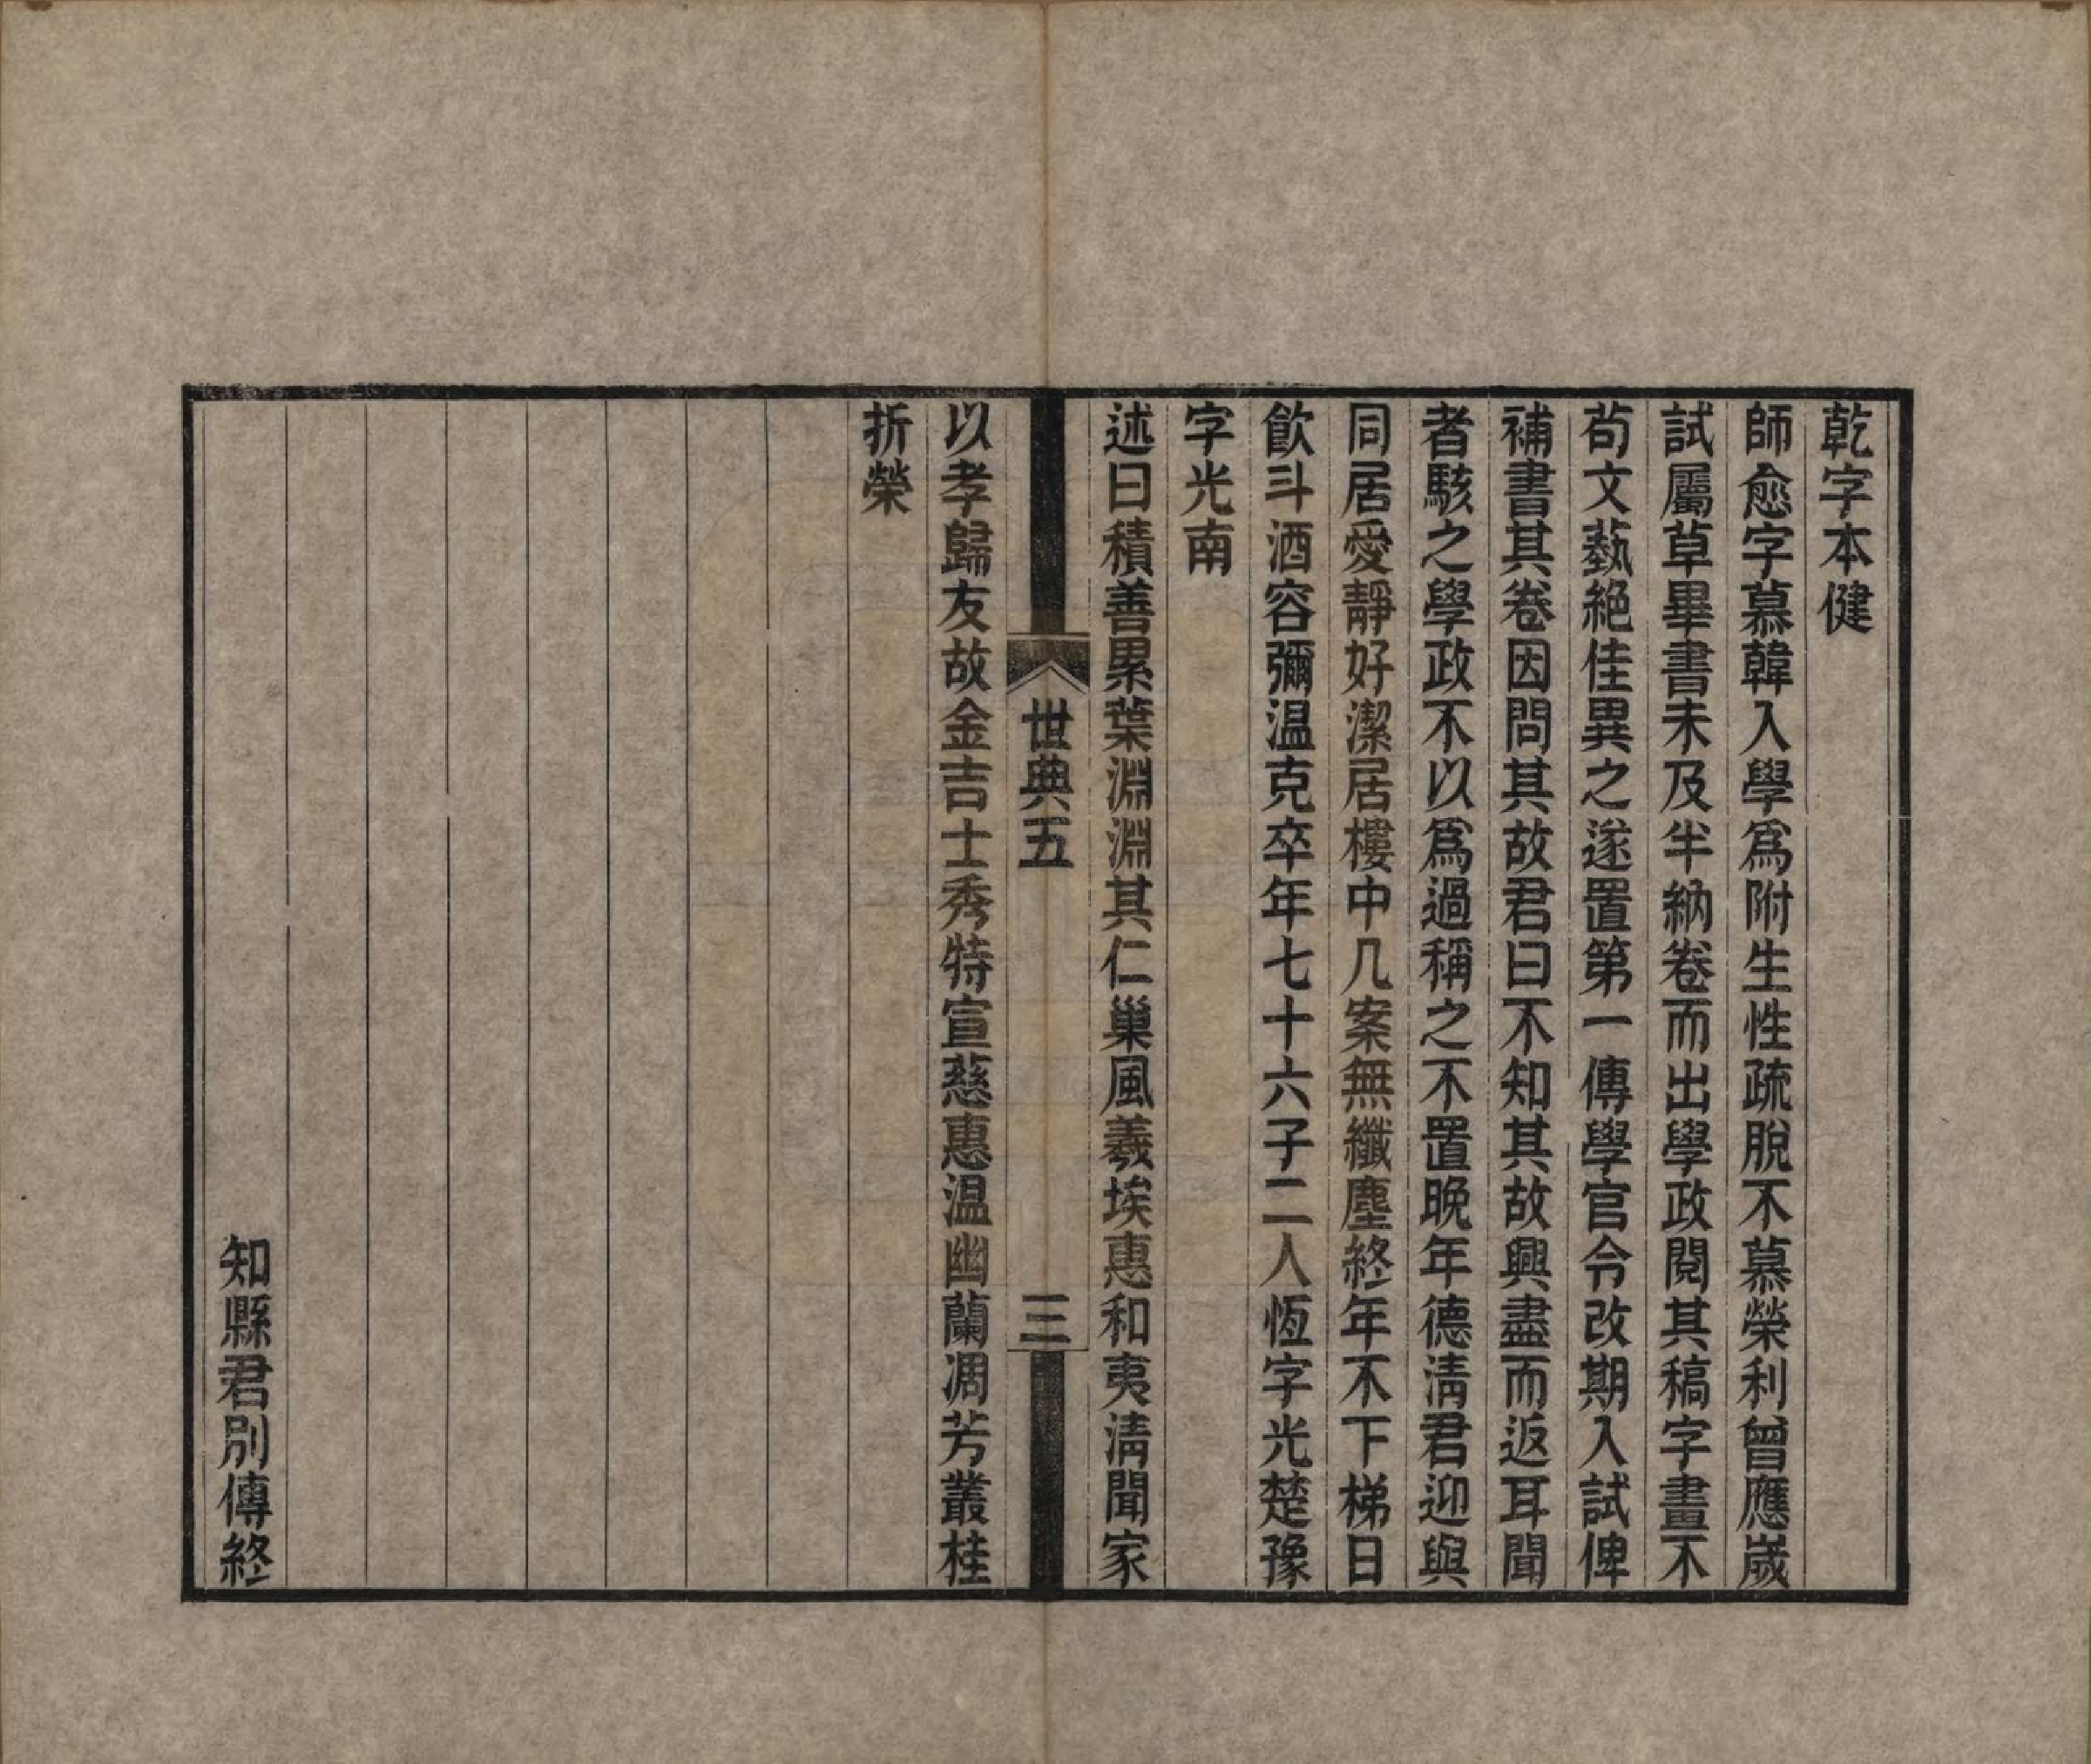 乾字本健
師愈字慕韓入學爲附生性疏脫不慕榮利曾應歲
試屬草畢書未及半納卷而出學政閱其稿字畫不
苟文藝絕佳異之遂置第一傳學官令改期入試俾
補書其卷因問其故君曰不知其故興盡而返耳聞
者駭之學政不以爲過稱之不置晚年德清君迎與
同居愛靜好潔居樓中几案無纖塵終年不下梯日
飲斗酒容彌温克卒年七十六子二人恆字光楚豫
字光南
述曰積善累葉淵淵其仁巢風羲埃惠和夷清聞家
世典五
三
以孝歸友故金吉士秀特宣慈惠温幽蘭凋芳叢桂
折榮
知縣君別傳終